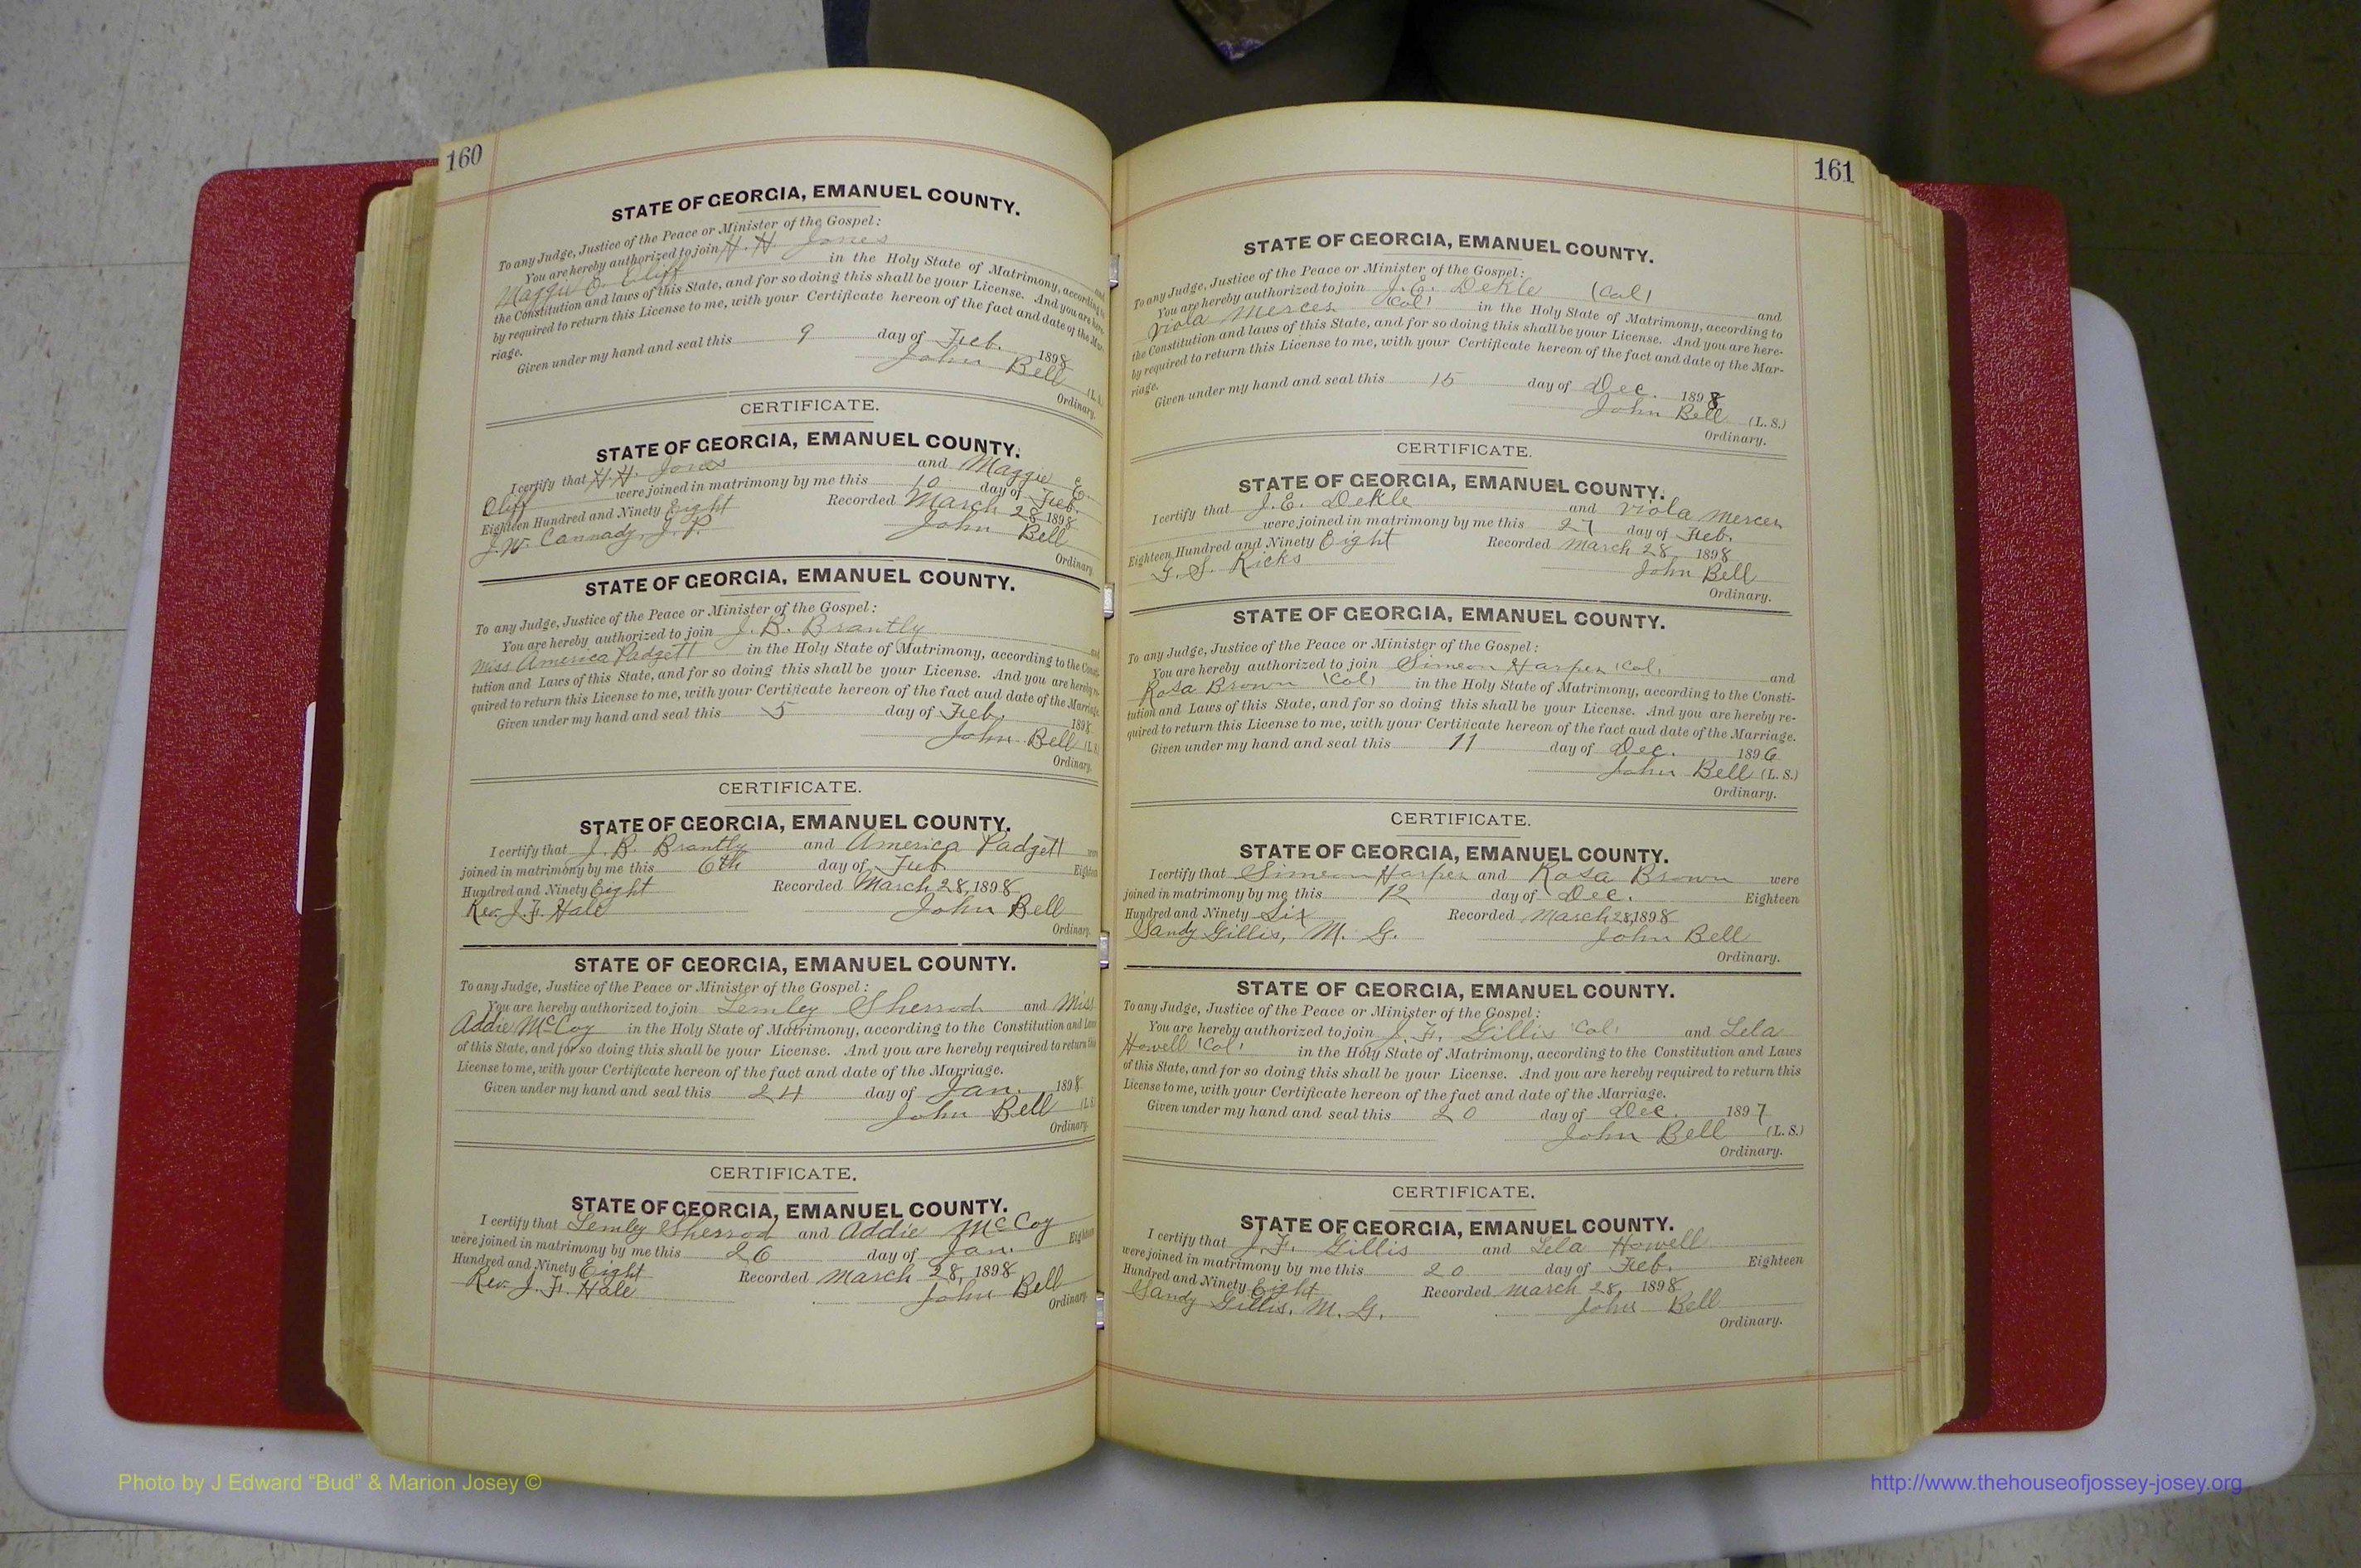 160
STATE OF GEORGIA, EMANUEL COUNTY.
To any Judge, Justice of the Peace or Minister of the Gospel:
You are hereby authorized to join H. H. Jones and
Maggie E. Oliff in the Holy State of Matrimony, according to
the Constitution and laws of this State, and for so doing this shall be your License. And you are here-
by required to return this License to me, with your Certificate hereon of the fact and date of the Mar-
riage.
Given under my hand and seal this 9 day of Feb. 1898
John Bell (L. S.)
Ordinary.
CERTIFICATE.
STATE OF GEORGIA, EMANUEL COUNTY.
I certify that H. H. Jones and Maggie E.
Oliff were joined in matrimony by me this 10 day of Feb.
Eighteen Hundred and Ninety Eight Recorded March 28 1898
J. W. Cannady, J. P. John Bell
Ordinary.
STATE OF GEORGIA, EMANUEL COUNTY.
To any Judge, Justice of the Peace or Minister of the Gospel:
You are hereby authorized to join J. B. Brantly and
Miss America Padgett in the Holy State of Matrimony, according to the Consti-
tution and Laws of this State, and for so doing this shall be your License. And you are hereby re-
quired to return this License to me, with your Certificate hereon of the fact and date of the Marriage.
Given under my hand and seal this 5 day of Feb. 1898
John Bell (L. S.)
Ordinary.
CERTIFICATE.
STATE OF GEORGIA, EMANUEL COUNTY.
I certify that J. B. Brantly and America Padgett were
joined in matrimony by me this 6th day of Feb Eighteen
Hundred and Ninety Eight Recorded March 28, 1898
Rev. J. F. Hale John Bell
Ordinary.
STATE OF GEORGIA, EMANUEL COUNTY.
To any Judge, Justice of the Peace or Minister of the Gospel:
You are hereby authorized to join Lemley Sherrod and Miss
Addie McCoy in the Holy State of Matrimony, according to the Constitution and Laws
of this State, and for so doing this shall be your License. And you are hereby required to return this
License to me, with your Certificate hereon of the fact and date of the Marriage.
Given under my hand and seal this 24 day of Jan. 1898
John Bell (L. S.)
Ordinary.
CERTIFICATE.
STATE OF GEORGIA, EMANUEL COUNTY.
I certify that Lemley Sherrod and Addie McCoy
were joined in matrimony by me this 26 day of Jan. Eighteen
Hundred and Ninety Eight Recorded March 28, 1898
Rev. J. F. Hale John Bell
Ordinary.
161
STATE OF GEORGIA, EMANUEL COUNTY.
To any Judge, Justice of the Peace or Minister of the Gospel:
You are hereby authorized to join J. E. Dekle (Col) and
Viola Mercer (Col) in the Holy State of Matrimony, according to
the Constitution and laws of this State, and for so doing this shall be your License. And you are here-
by required to return this License to me, with your Certificate hereon of the fact and date of the Mar-
riage.
Given under my hand and seal this 15 day of Dec. 1898
John Bell (L. S.)
Ordinary.
CERTIFICATE.
STATE OF GEORGIA, EMANUEL COUNTY.
I certify that J. E. Dekle and Viola Mercer
were joined in matrimony by me this 27 day of Feb.
Eighteen Hundred and Ninety Eight Recorded March 28, 1898
G. S. Ricks John Bell
Ordinary.
STATE OF GEORGIA, EMANUEL COUNTY.
To any Judge, Justice of the Peace or Minister of the Gospel:
You are hereby authorized to join Simeon Harper (Col) and
Rosa Brown (Col) in the Holy State of Matrimony, according to the Consti-
tution and Laws of this State, and for so doing this shall be your License. And you are hereby re-
quired to return this License to me, with your Certificate hereon of the fact and date of the Marriage.
Given under my hand and seal this 11 day of Dec. 1896
John Bell (L. S.)
Ordinary.
CERTIFICATE.
STATE OF GEORGIA, EMANUEL COUNTY.
I certify that Simeon Harper and Rosa Brown were
joined in matrimony by me this 12 day of Dec. Eighteen
Hundred and Ninety Six Recorded March 28, 1898
Sandy Gillis, M. G. John Bell
Ordinary.
STATE OF GEORGIA, EMANUEL COUNTY.
To any Judge, Justice of the Peace or Minister of the Gospel:
You are hereby authorized to join J. F. Gillis (Col) and Lela
Howell (Col) in the Holy State of Matrimony, according to the Constitution and Laws
of this State, and for so doing this shall be your License. And you are hereby required to return this
License to me, with your Certificate hereon of the fact and date of the Marriage.
Given under my hand and seal this 20 day of Dec. 1897
John Bell (L. S.)
Ordinary.
CERTIFICATE.
STATE OF GEORGIA, EMANUEL COUNTY.
I certify that J. F. Gillis and Lela Howell
were joined in matrimony by me this 20 day of Feb. Eighteen
Hundred and Ninety Eight Recorded March 28, 1898
Sandy Gillis, M. G. John Bell
Ordinary.
Photo by J Edward “Bud” & Marion Josey ©
http://www.thehouseofjossey-josey.org